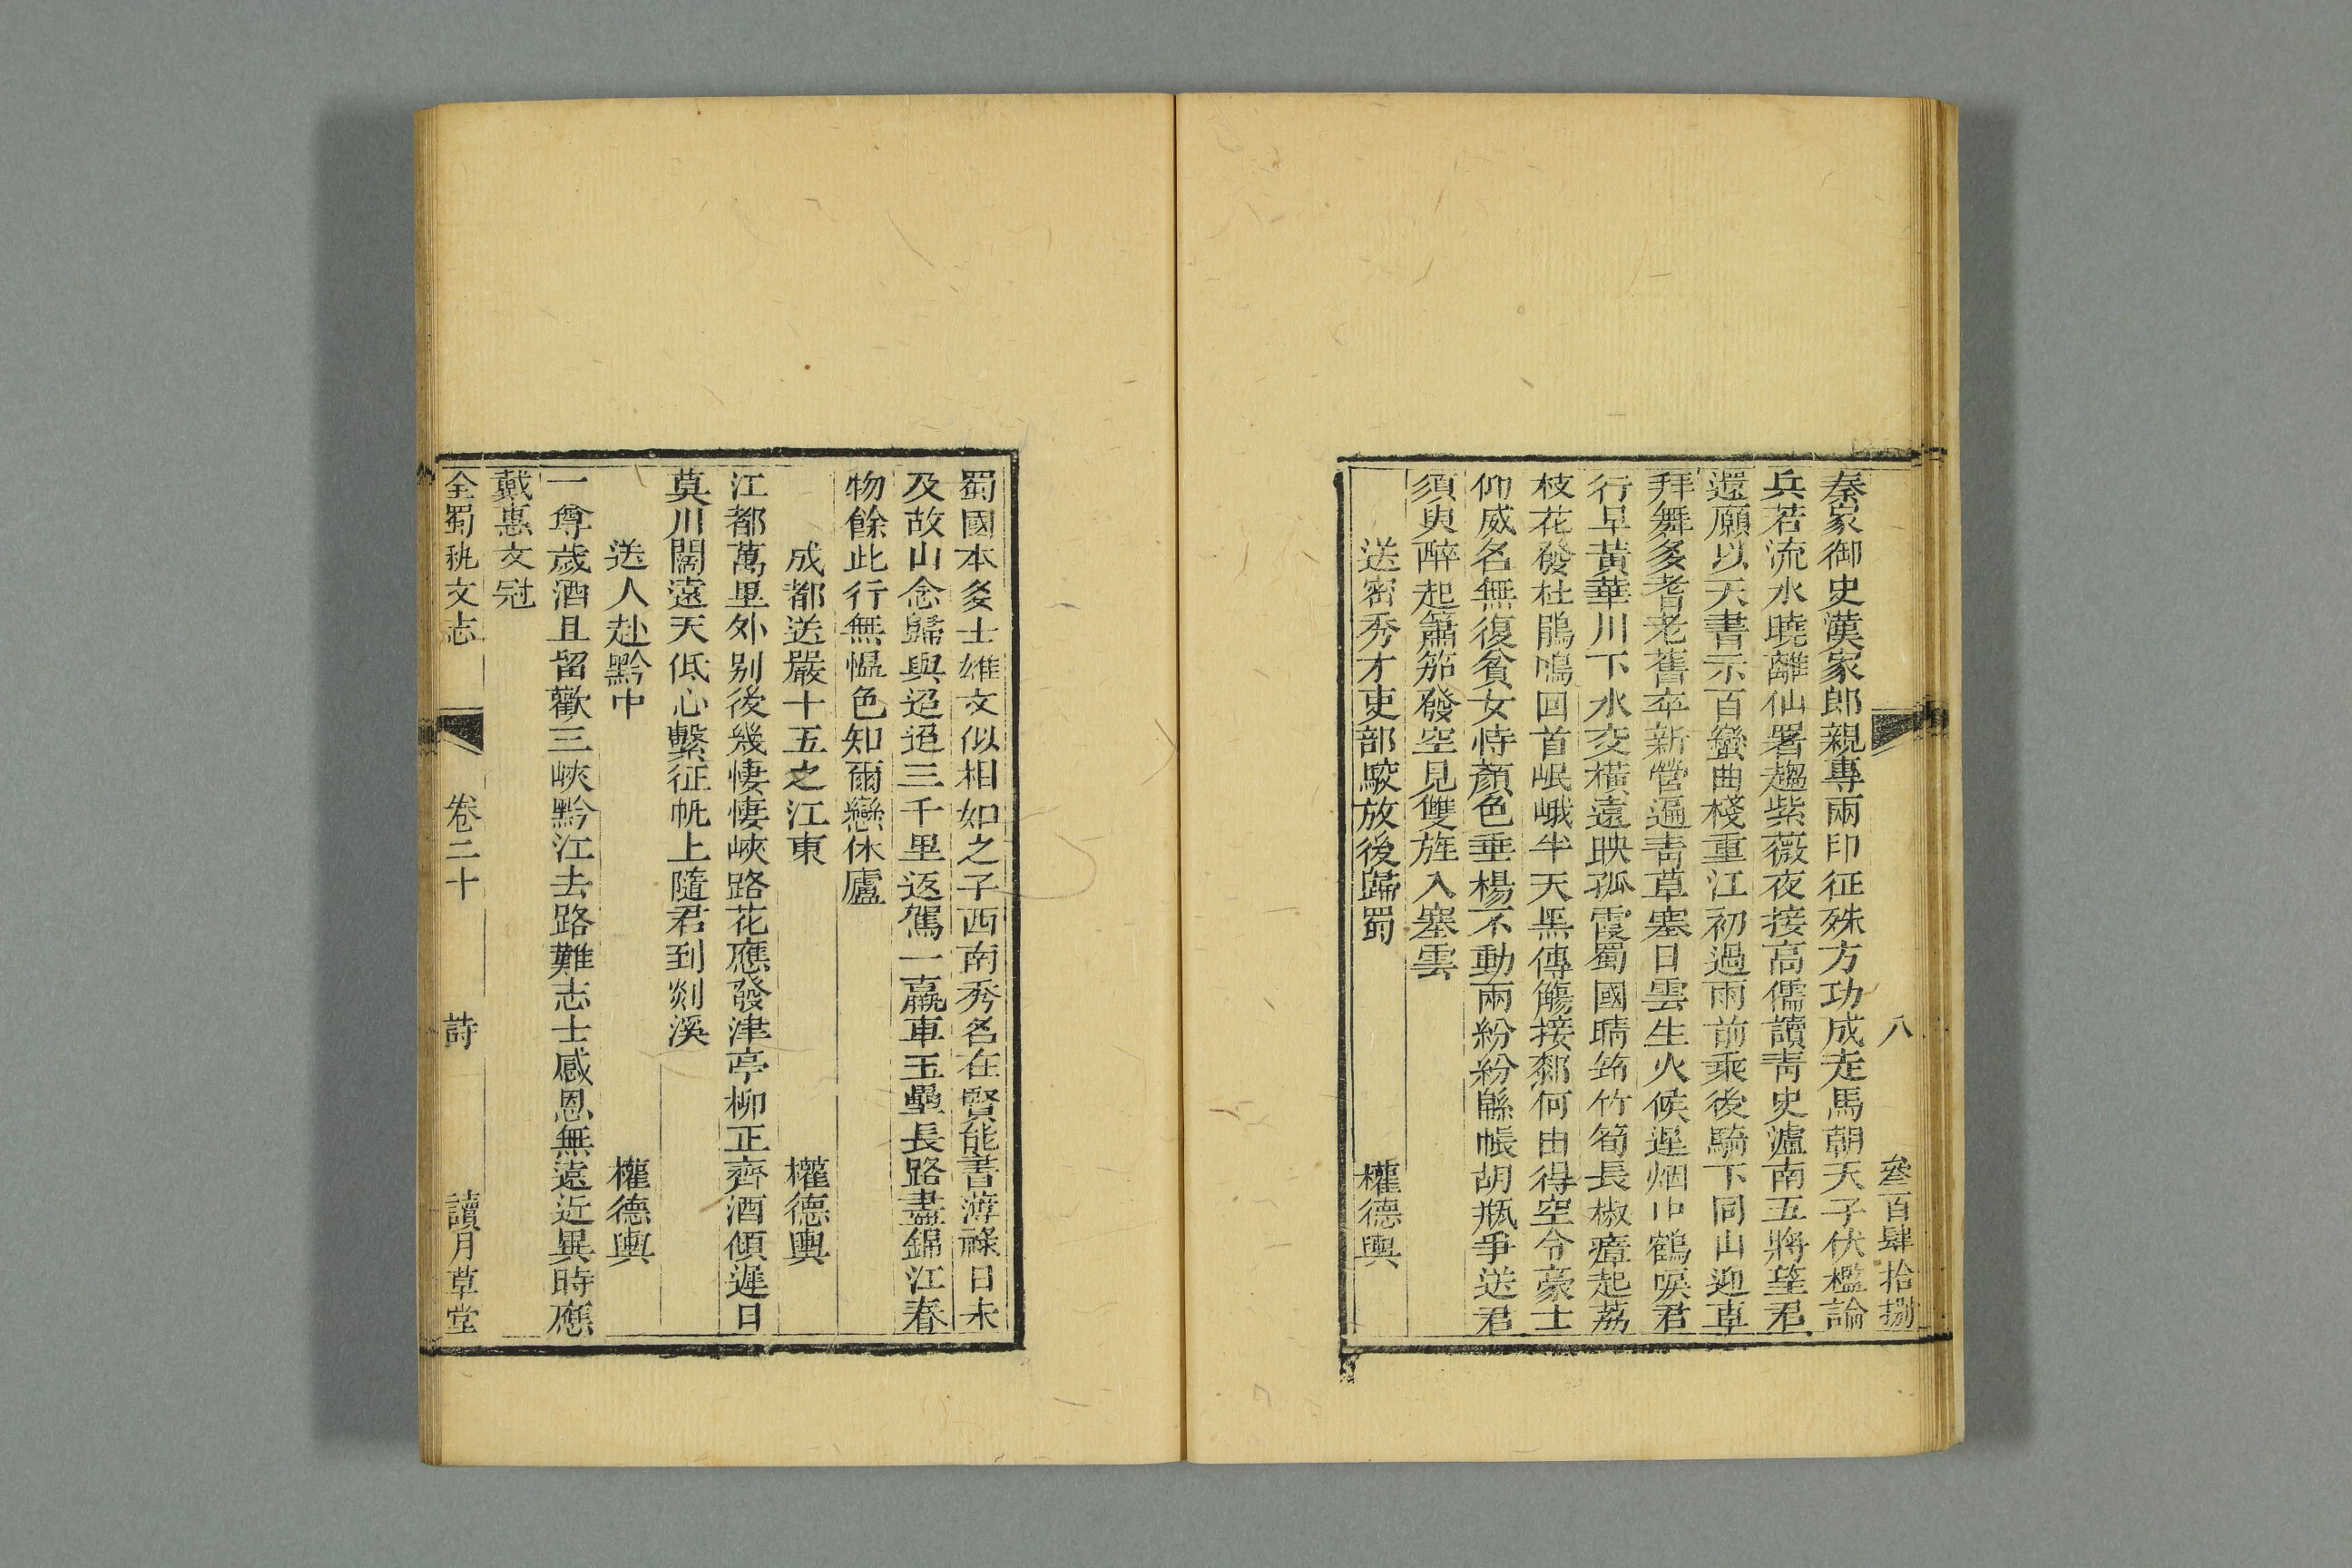 八 叄百肆拾捌
秦家御史漢家郎親專兩印征殊方功成走馬朝天子伏檻論
兵若流水曉離仙署趨紫薇夜接高儒讀靑史瀘南五將望君
還願以天書示百蠻曲棧重江初過雨前乘後騎下同山迎車
拜舞多耆老舊卒新營遍靑草塞日雲生火候遲烟中鶴唳君
行早黃華川下水交橫遠映孤霞蜀國晴筇竹筍長椒瘴起荔
枝花發杜鵑鳴回首岷峨半天黑傳觴接䣛何由得空令豪士
仰威名無復貧女恃顏色垂楊不動雨紛紛錦帳胡瓶爭送君
須臾醉起簫笳發空見雙旌入塞雲
送密秀才吏部駮放後歸蜀 權德輿
蜀國本多士雄文似相如之子西南秀名在賢能書薄祿日未
及故山念歸與迢迢三千里返駕一羸車玉壘長路盡錦江春
物餘此行無慍色知爾戀休廬
成都送嚴十五之江東 權德輿
江都萬里外別後幾悽悽峽路花應發津亭柳正齊酒傾遲日
莫川闊遠天低心繫征帆上隨君到剡溪
送人赴黔中 權德輿
一尊歲酒且留歡三峽黔江去路難志士感恩無遠近異時應
戴惠文冠
全蜀秇文志 卷二十 詩 讀月草堂